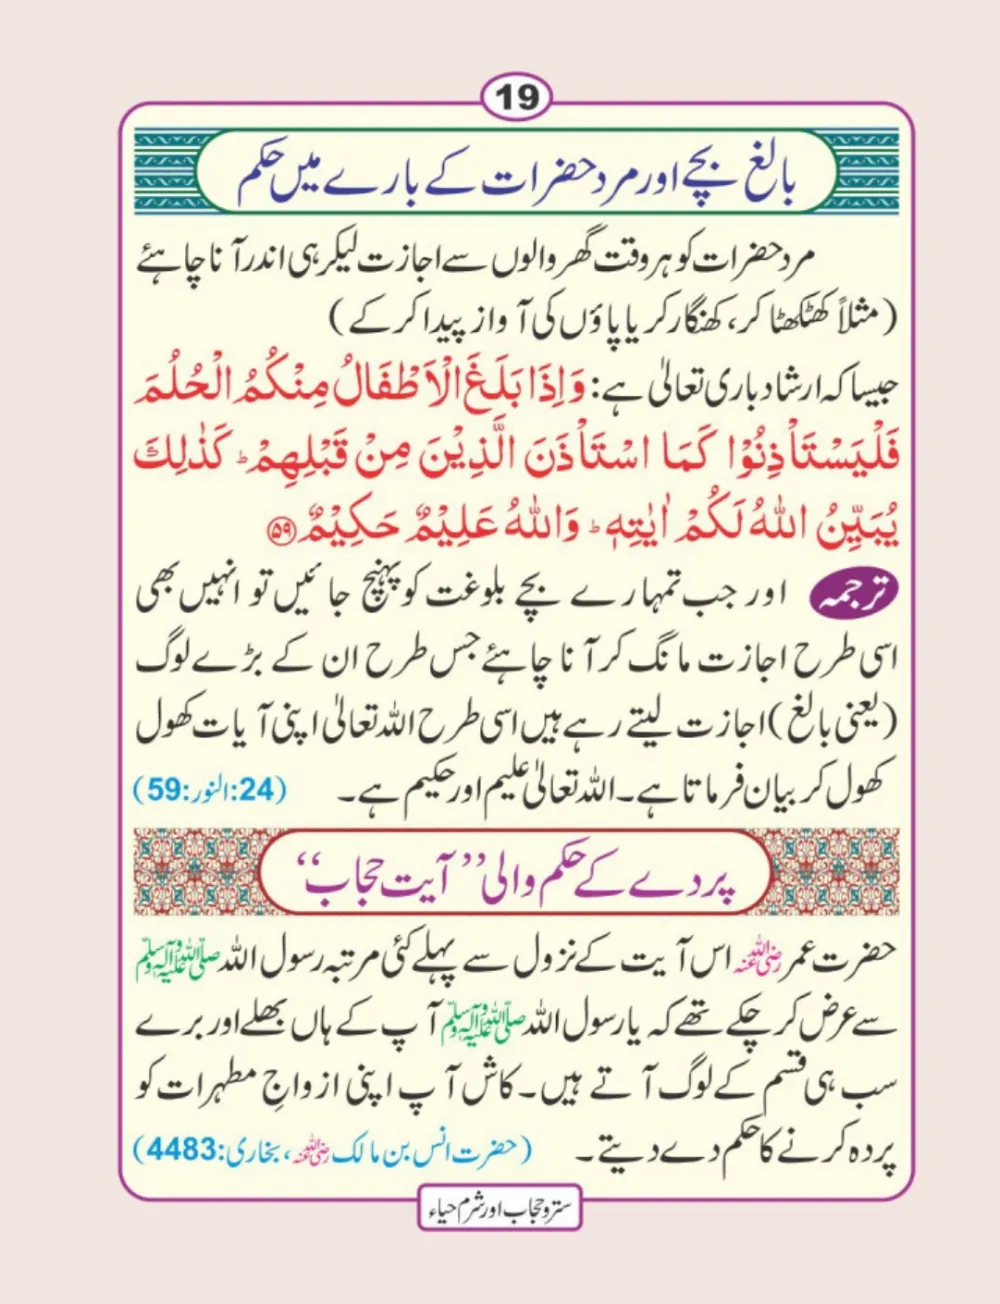 19
بالغ بچے اور مرد حضرات کے بارے میں حکم
مرد حضرات کو ہر وقت گھر والوں سے اجازت لیکر ہی اندر آنا چاہئے
(مثلاً کھٹکھٹا کر، کھنگار کر یا پاؤں کی آواز پیدا کر کے)
جیسا کہ ارشاد باری تعالیٰ ہے: وَاِذَا بَلَغَ الْاَطْفَالُ مِنْكُمُ الْحُلُمَ
فَلْيَسْتَاْذِنُوْا كَمَا اسْتَاْذَنَ الَّذِيْنَ مِنْ قَبْلِهِمْ ؕ كَذٰلِكَ
يُبَيِّنُ اللّٰهُ لَكُمْ اٰيٰتِهٖ ؕ وَاللّٰهُ عَلِيْمٌ حَكِيْمٌ ﴿۵۹﴾
ترجمہ اور جب تمہارے بچے بلوغت کو پہنچ جائیں تو انہیں بھی
اسی طرح اجازت مانگ کر آنا چاہئے جس طرح ان کے بڑے لوگ
(یعنی بالغ) اجازت لیتے رہے ہیں اسی طرح اللہ تعالیٰ اپنی آیات کھول
کھول کر بیان فرماتا ہے۔ اللہ تعالیٰ علیم اور حکیم ہے۔ (24:النور:59)
پردے کے حکم والی ”آیت حجاب“
حضرت عمر رضی اللہ عنہ اس آیت کے نزول سے پہلے کئی مرتبہ رسول اللہ ﷺ
سے عرض کر چکے تھے کہ یا رسول اللہ ﷺ آپ کے ہاں بھلے اور برے
سب ہی قسم کے لوگ آتے ہیں۔ کاش آپ اپنی ازواجِ مطہرات کو
پردہ کرنے کا حکم دے دیتے۔ (حضرت انس بن مالک رضی اللہ عنہ، بخاری:4483)
ستر و حجاب اور شرم حیاء